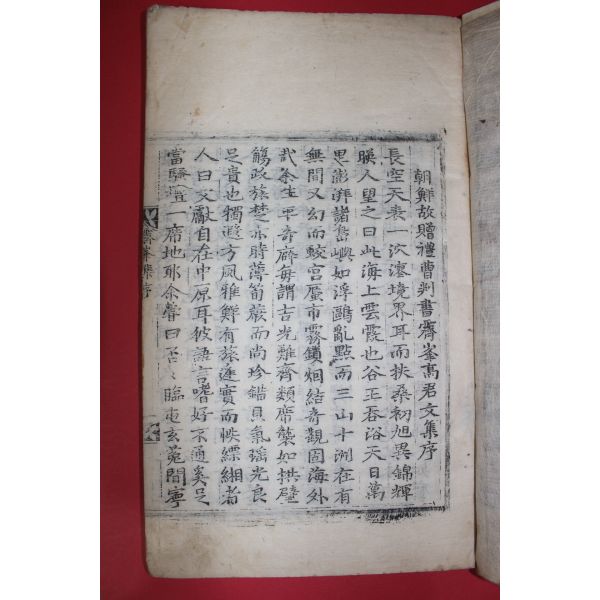 朝鮮故贈禮曹判書霽峯高君文集序
長空天表一泬漻境界耳而扶桑初旭異錦輝
映人望之曰此海上雲霞也谷王吞浴天日萬
思澎湃諸嶌嶼如浮鷗亂點而三山十洲在有
無間又幻而蛟宮蜃市霧鎖烟結奇觀固海外
哉余生平奇癖每謂吉光難齊類席襲如拱璧
觴政旅楚亦時薄笥厳而尚珍鑑貝氣瑶光良
足貴也獨遐方風雅鮮有旅逐實而帙縹緗者
人曰文獻自在中原耳彼語言嗜好不通奚足
當驕壇一席地耶余聲曰否〻臨屯玄菟間寧
霽峯集序
一